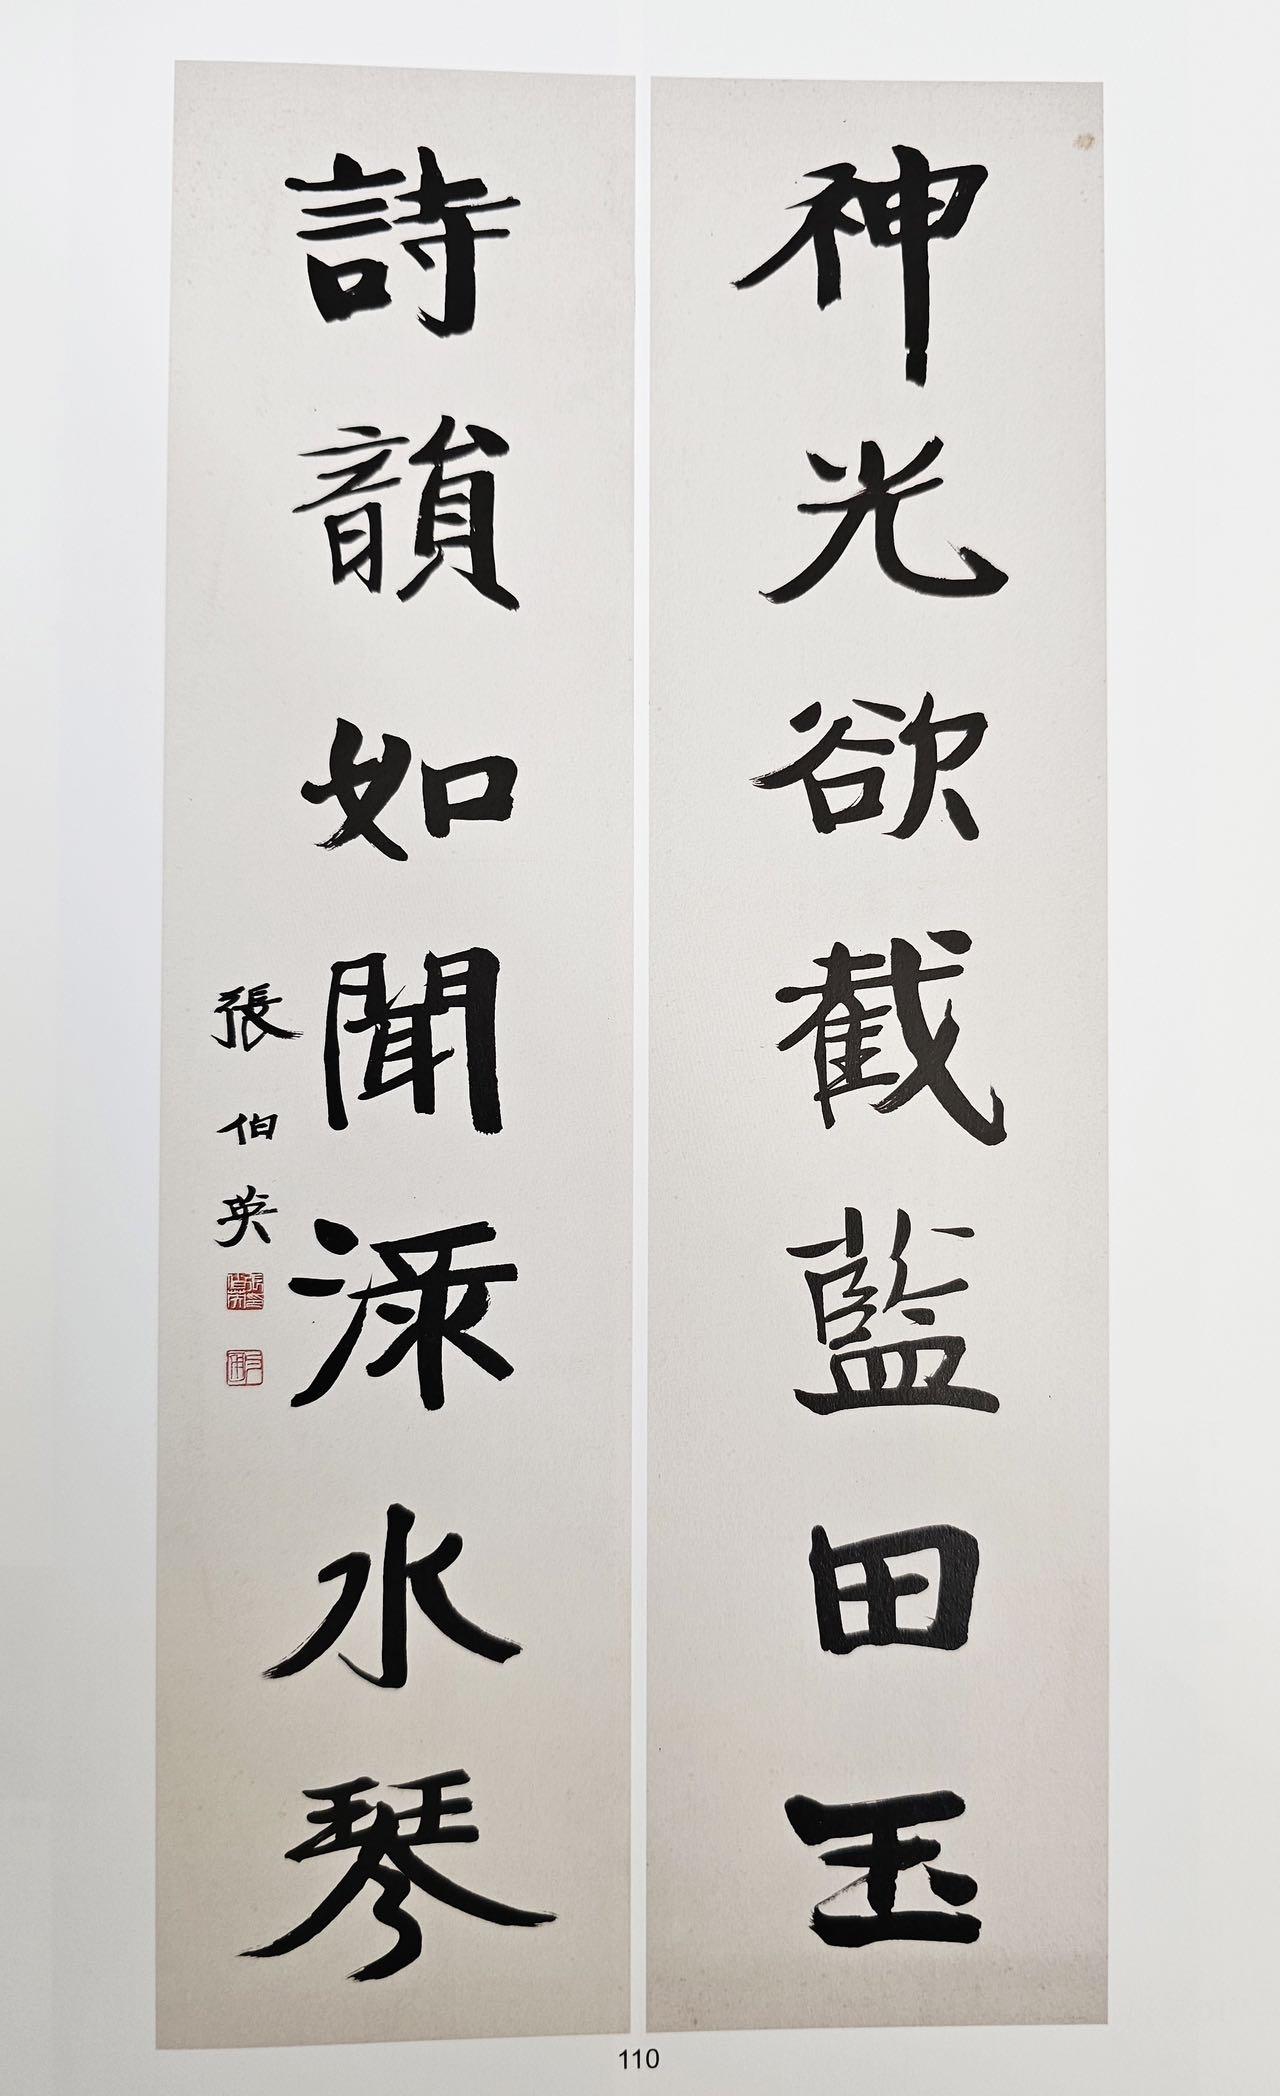 神光欲截藍田玉
詩韻如聞淥水琴
張伯英
110